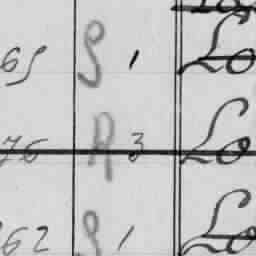 65 S 1 Lo
76 R 3 Lo
62 S 1 Lo